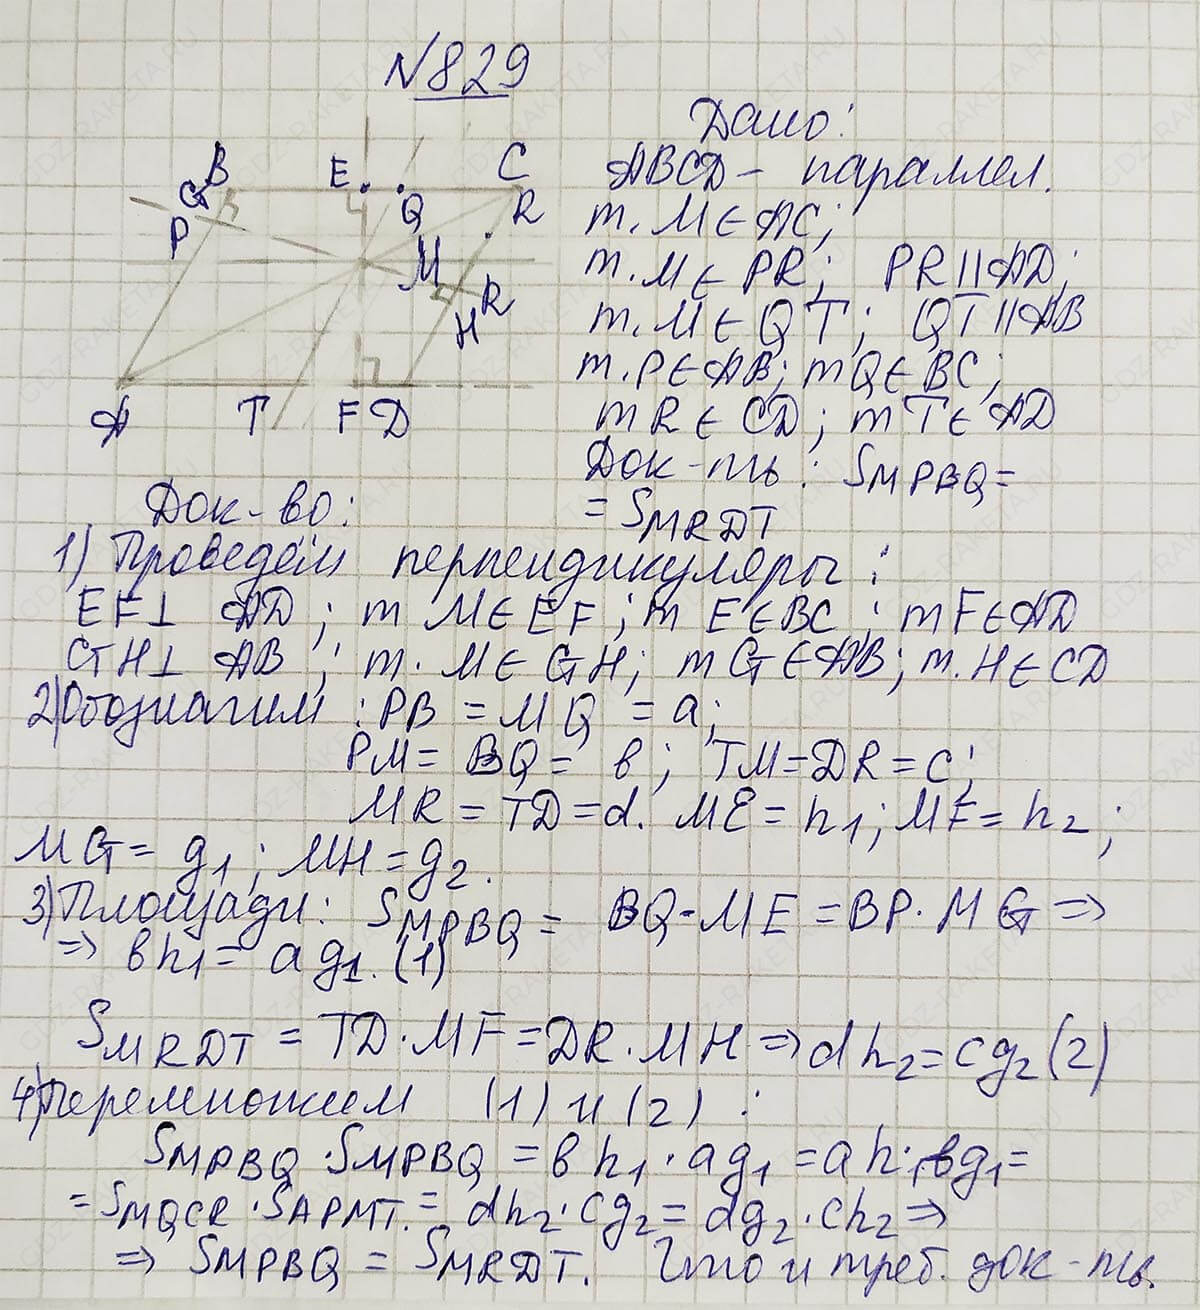 №829
Дано:
ABCD - параллел.
т. M ∈ AC;
т. M ∈ PR; PR || AD;
т. M ∈ QT; QT || AB
т. P ∈ AB; т Q ∈ BC;
т R ∈ CD; т T ∈ AD
Док-ть: SMPBQ =
= SMRDT
B E C
G Q R
P M
H R
A T F D
Док-во:
1) Проведём перпендикуляры:
EF ⊥ AD; т M ∈ EF; т E ∈ BC; т F ∈ AD
GH ⊥ AB; т. M ∈ GH; т G ∈ AB; т. H ∈ CD
2) Обозначим: PB = MQ = a;
PM = BQ = b; TM = DR = c;
MR = TD = d. ME = h1; MF = h2;
MG = g1; MH = g2.
3) Площади: SMPBQ = BQ · ME = BP · MG ⇒
⇒ bh1 = ag1. (1)
SMRDT = TD · MF = DR · MH ⇒ dh2 = cg2 (2)
4) Перемножим (1) и (2):
SMPBQ · SMPBQ = bh1 · ag1 = ah1 · bg1 =
= SMQCR · SAPMT. = dh2 · cg2 = dg2 · ch2 ⇒
⇒ SMPBQ = SMRDT. Что и треб. док-ть.
GDZ-RAKETA.RU